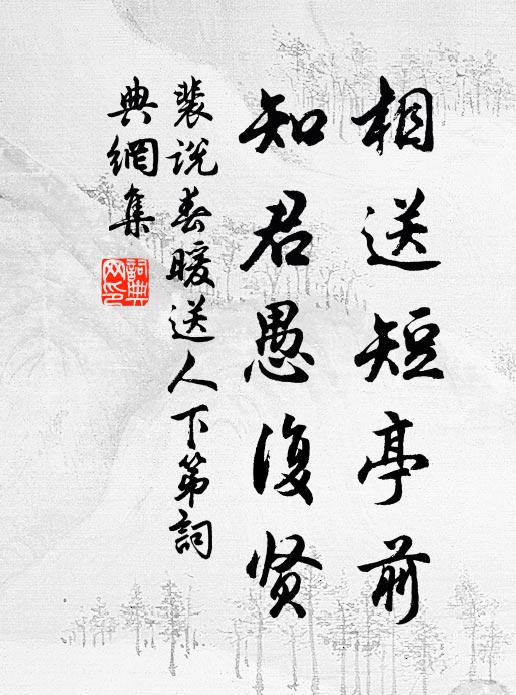 相送短亭前
知君愚復贤
裴说春暖送人下第詞
典網集
詞典网印